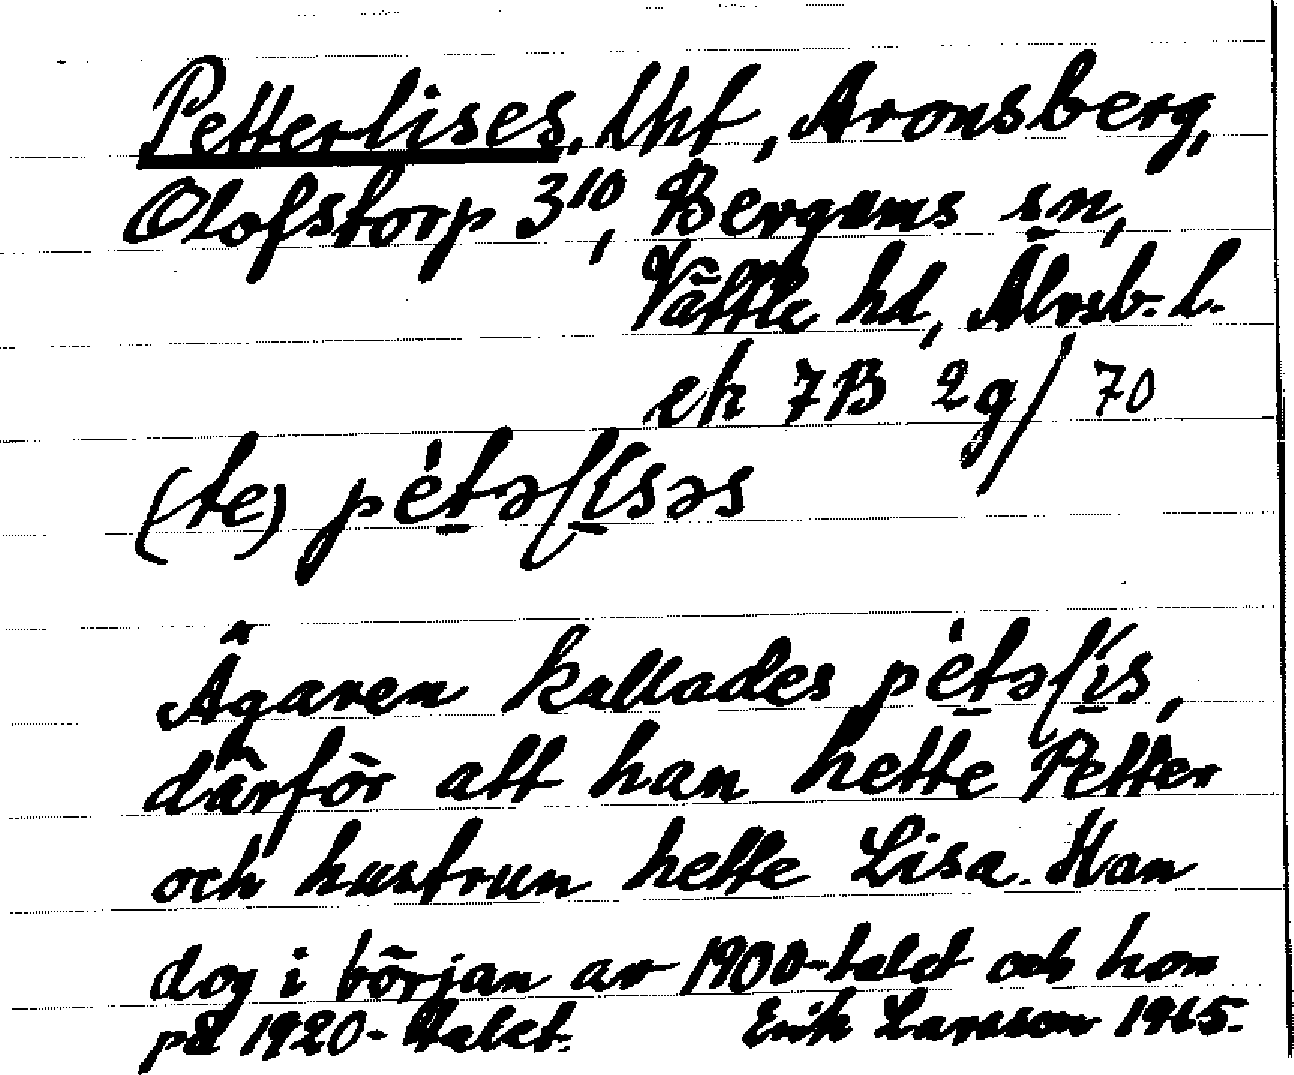 Petterlises, lht, Aronsberg,
Olofstorp 3¹⁰, Bergums sn,
Vättle hd, Älvsb. l.
ek 7B 2g/70
(te) pètəlísəs
Ägaren kallades pètəlís,
därför att han hette Petter
och hustrun hette Lisa. Han
dog i början av 1900-talet och hon
på 1920-talet. Erik Larsson 1965.